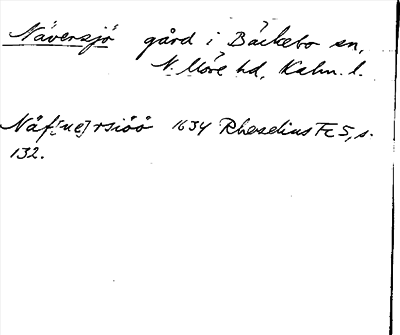 Näversjö gård i Bäckebo sn,
N. Möre hd, Kalm. l.
Näf[ue]rsiöö 1634 Rhezelius Fc5, s.
132.